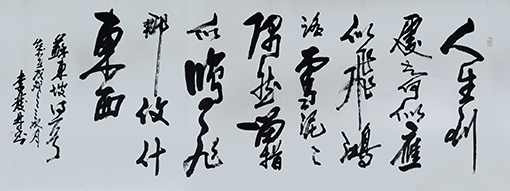 人生到
處知何似應
似飛鴻
踏雪泥
偶然留指
鴻飛
那復計
東西
蘇東坡詩一首